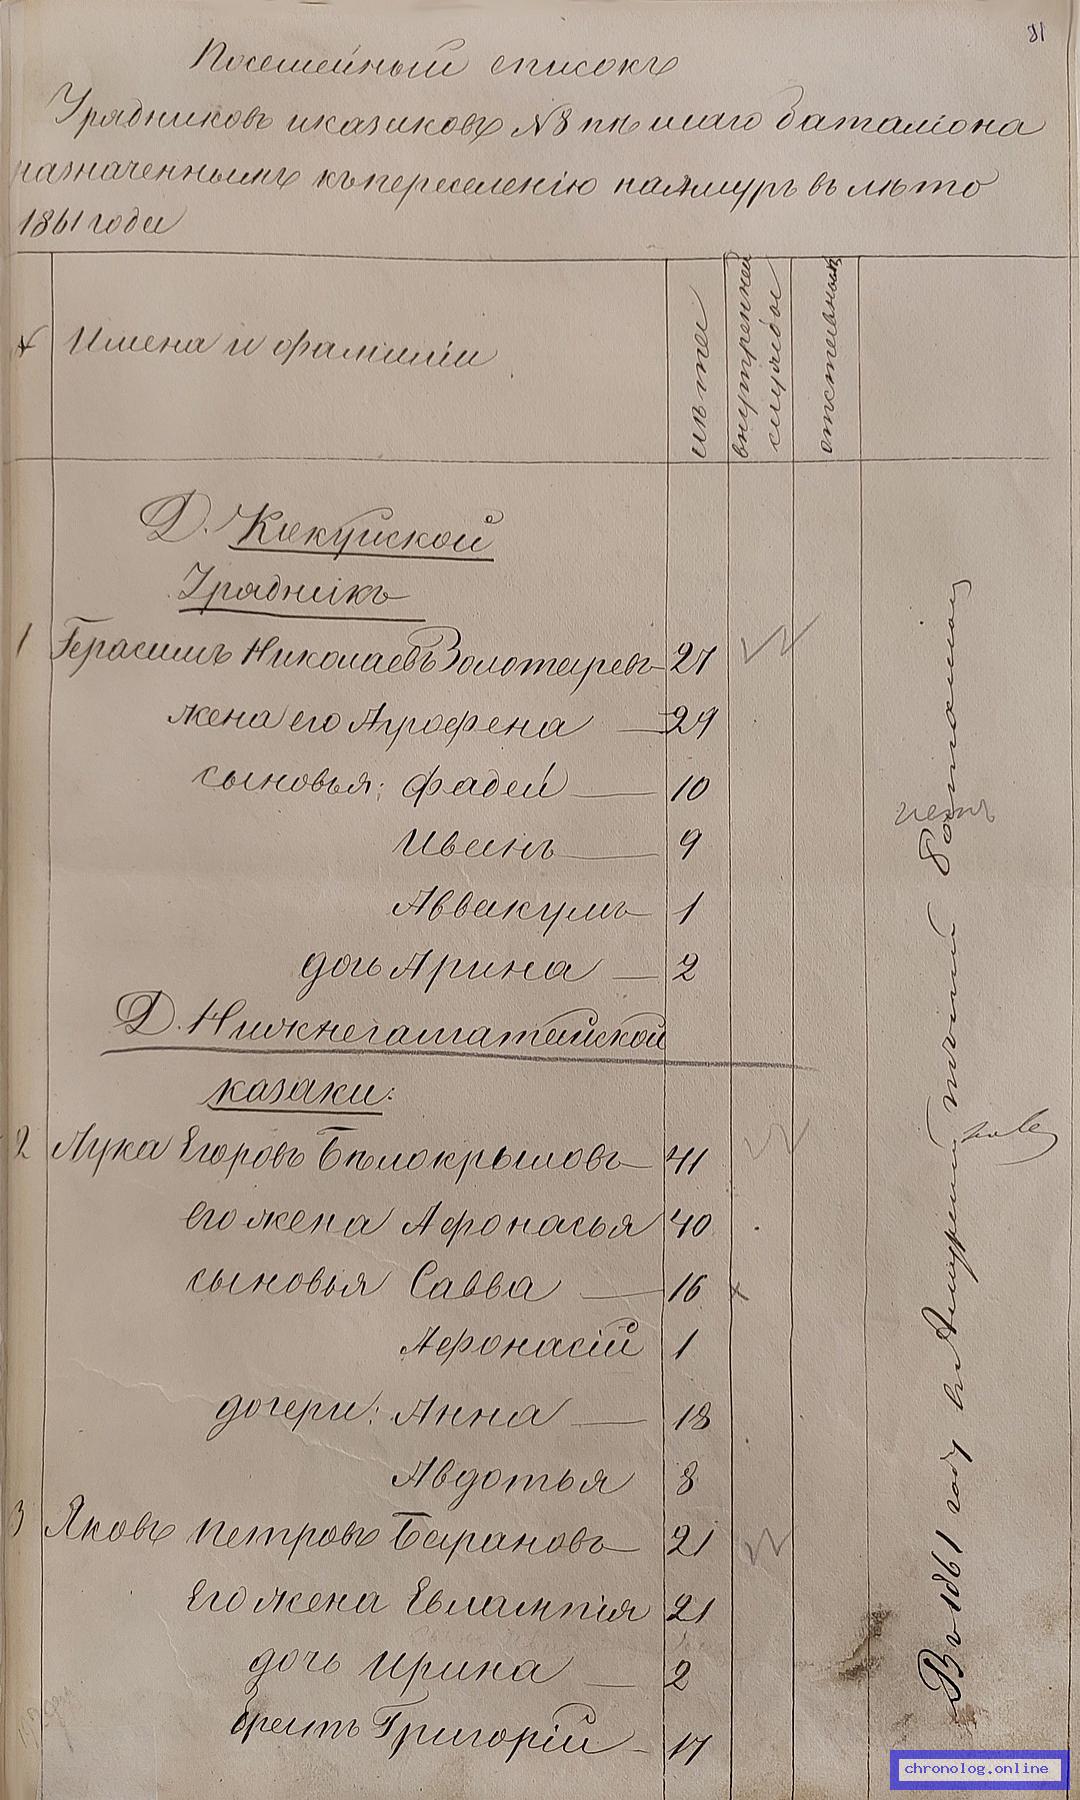 81
Посемейный списокъ
Урядниковъ и казаковъ № 8 пѣшаго баталіона
назначеннымъ къ переселенію на Амуръ въ лѣто
1861 года
Имена и фамиліи
лѣта
внутренней
службы
Д. Кокуйской
Урядникъ
1 Герасимъ Николаевъ Золотаревъ 27
жена его Агрофена 29
сыновья: Фадей 10
Иванъ 9
Аввакумъ 1
дочь Арина 2
Д. Нижнегаматайской
казаки:
2 Лука Егоровъ Бѣлокрыловъ 41
его жена Афонасья 40
сыновья Савва 16
Афонасій 1
дочери: Анна 18
Авдотья 8
3 Яковъ Петровъ Барановъ 21
Его жена Евлампія 21
дочь Ирина 2
братъ Григорій 17
Въ 1861 году въ Амурскій пѣшій баталіонъ
chronolog.online